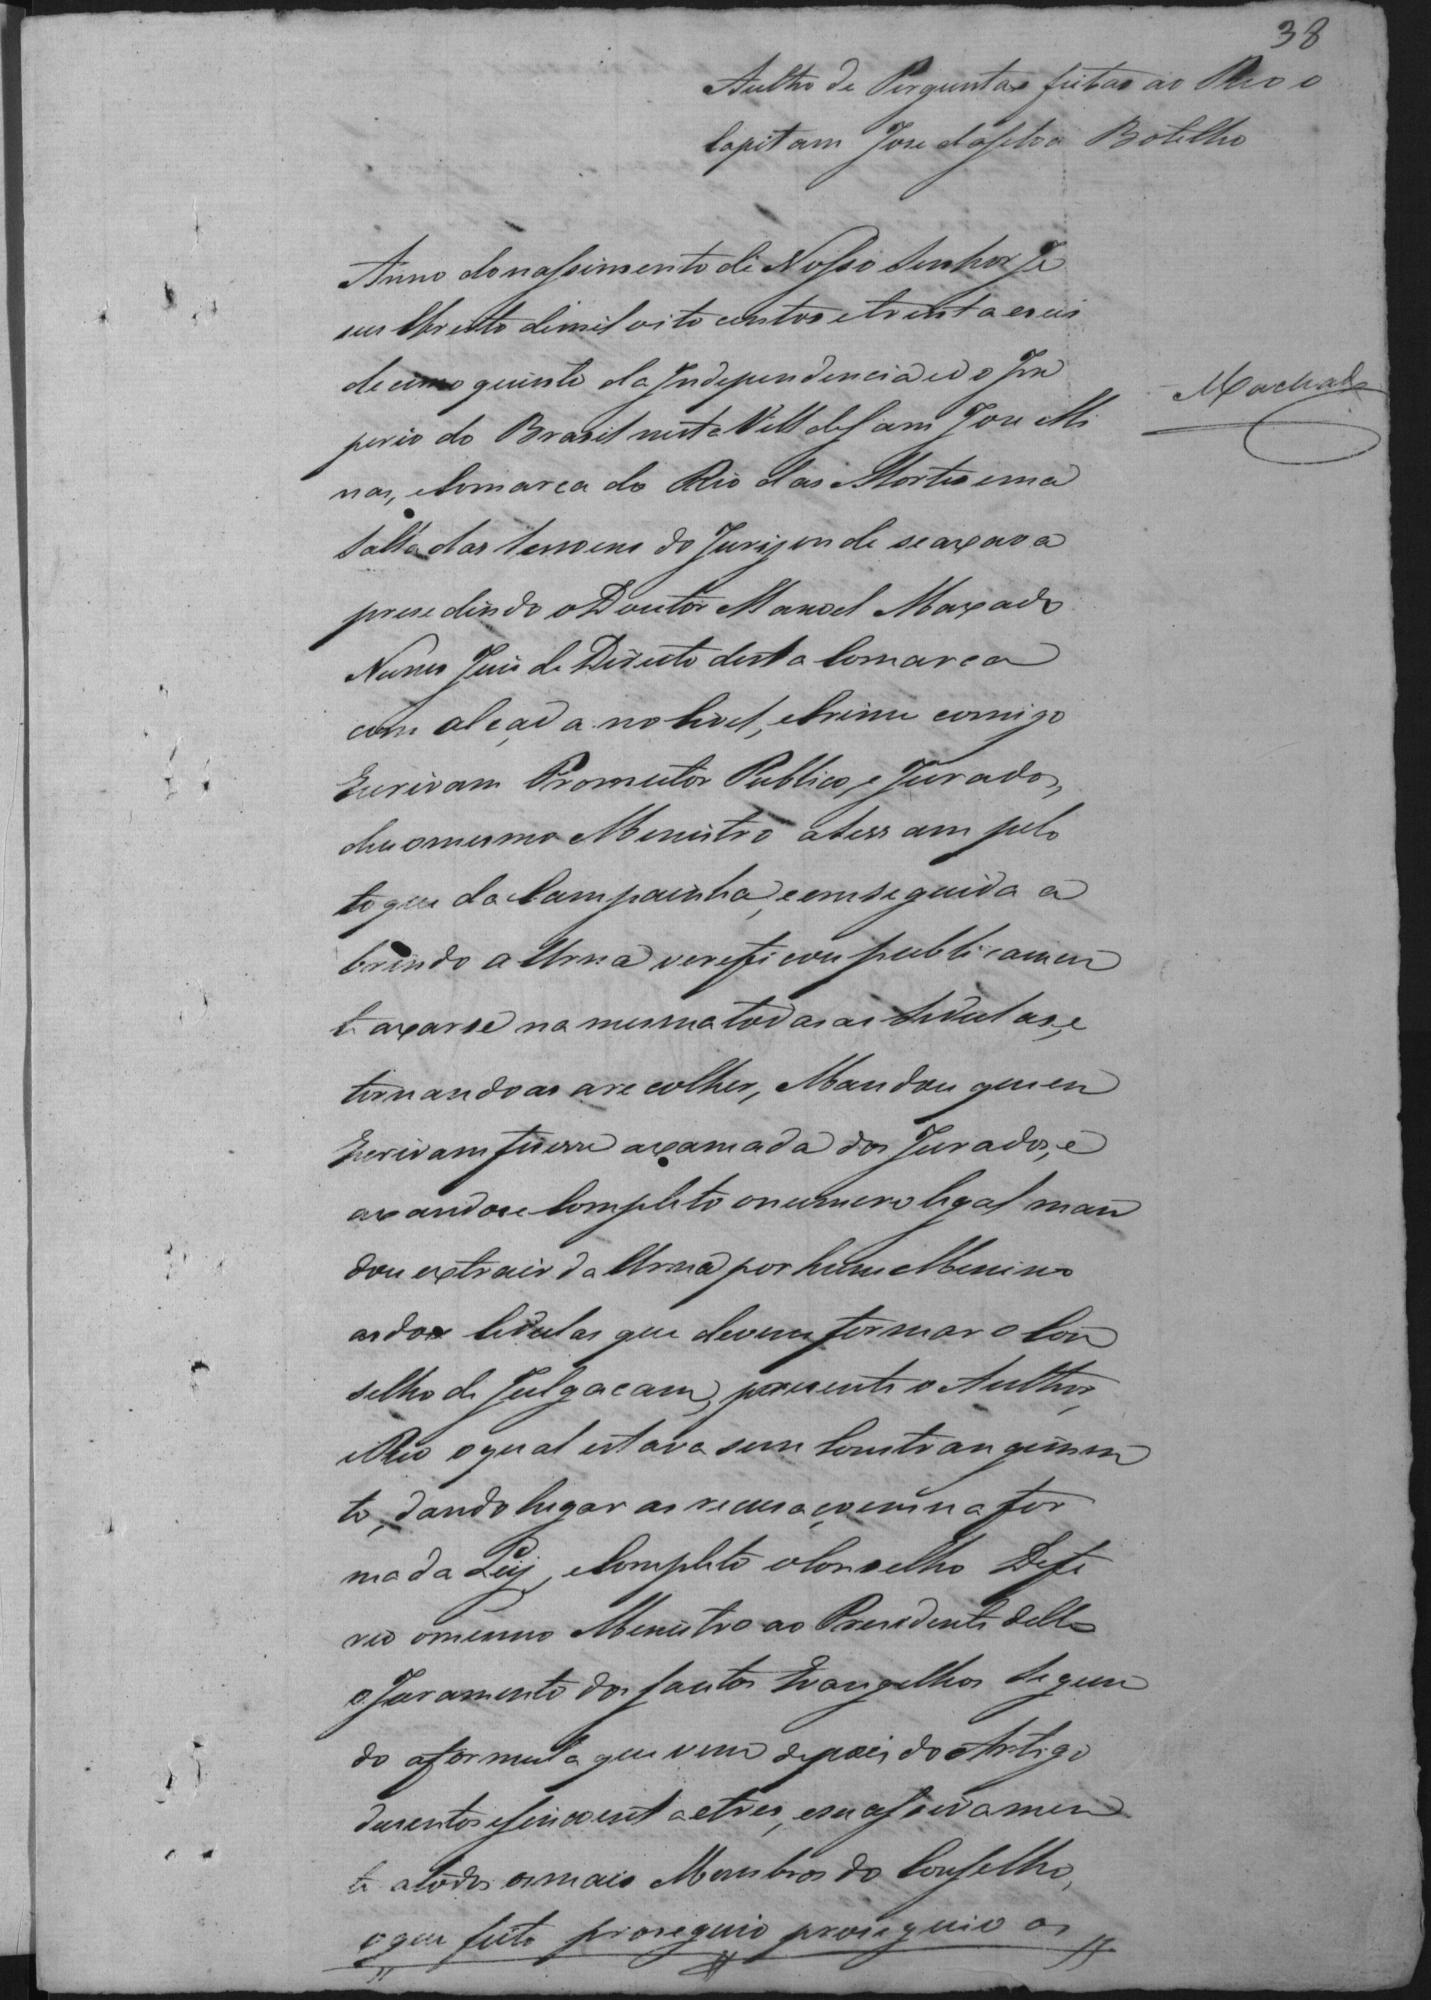 38
Aultho de Perguntas feitas ao Reo o
Capitam Jose da Silva Botelho
Anno do nassimento de Nosso Senhor Je
sus Christo de mil oito centos e trenta e seis
decimo quinto da Independencia e do Im
perio do Brasil nesta Villa de Sam Jose Mi
nas, e Comarca do Rio das Mortes em a
Salla das Sessoens do Jury onde se axava
presedindo o Doutor Manoel Maxado
Nunes Juis de Direito desta Comarca
com alçada no Civel, e Crime comigo
Escrivam Promutor Publico, e Jurados,
deu o mesmo Menistro a Sessam pelo
toque da Campainha, e em seguida a
brindo a Urna verificou publicamen
te axarse na mesma todas as Sedulas, e
tornando as a recolher, Mandou que eu
Escrivam fisesse a xamada dos Jurados, e
axandose Completo o numero legal man
dou extrair da Urna por hum Menino
as doze Cedulas que devem formar o Con
selho de Julgacam, presente o Aulthor,
e Reo o qual estava sem Constrangimen
to, dando lugar as recusaçoens na for
ma da Ley, e Completo o Conselho Defe
rio o mesmo Menistro ao Presidente delle
o Juramento dos Santos Evangelhos Segun
do a formula que vem depois do Artigo
dusentos e sincoenta e tres, e susessivamen
te a todos os mais Membros do Conselho,
o que feito proseguio proseguio as
Machado